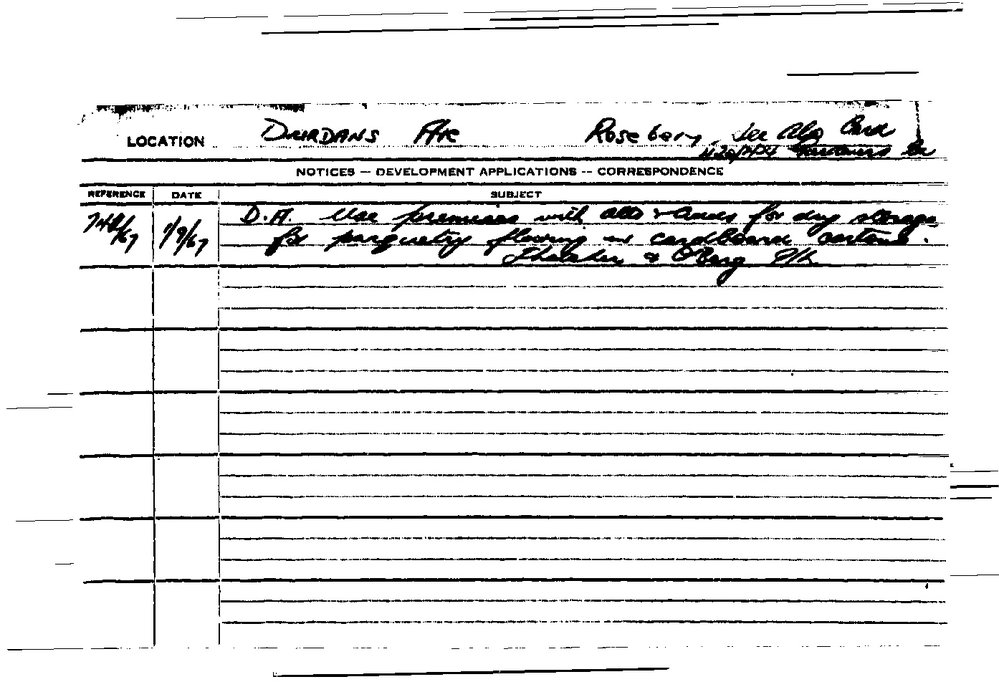 LOCATION DURDANS AVE Rosebery. See Also Card
NOTICES — DEVELOPMENT APPLICATIONS — CORRESPONDENCE
REFERENCE DATE SUBJECT
1/9/67 D.A. Use premises with alts & for dry storage
for parquetry flooring in cardboard cartons.
& P/L.